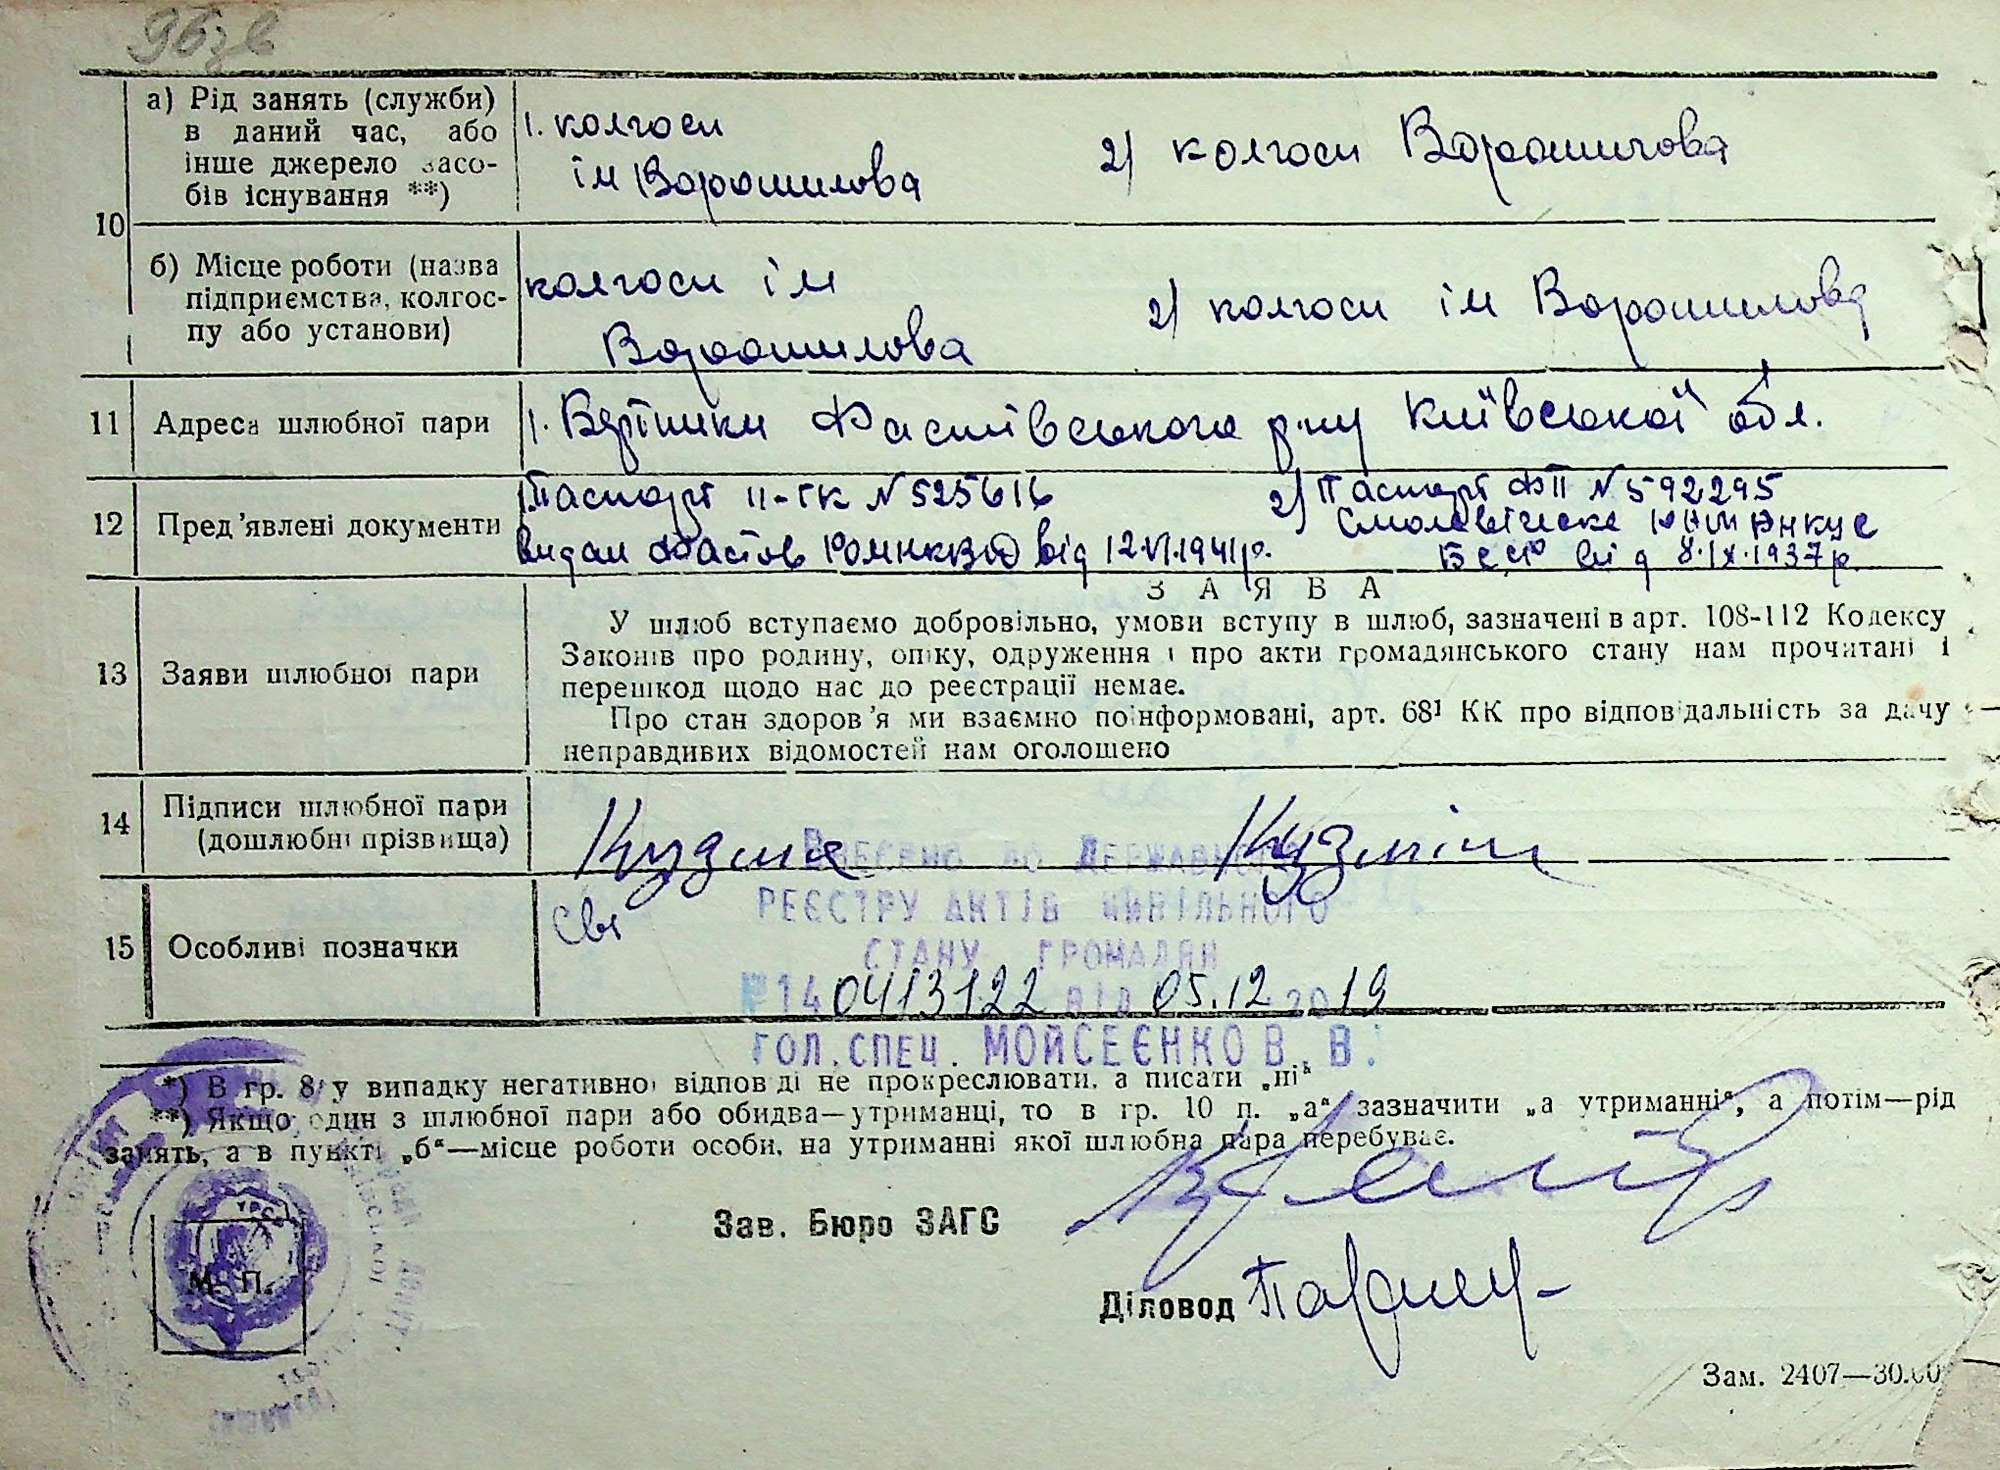 а) Рід занять (служби)
в даний час, або
інше джерело засо-
бів існування **)
1. колгосп
ім Ворошилова
2) колгосп Ворошилова
10
б) Місце роботи (назва
підприємства, колгос-
пу або установи)
колгосп ім
Ворошилова
2) колгосп ім Ворошилова
11 Адреса шлюбної пари
1. Фастівського р-ну Київської обл.
12 Пред'явлені документи
1. Паспорт II-ГК N 525616
видан Фастов РОМНКВД від 12.VI.1941 р.
2) Паспорт ФП N 592295
БССР від 8.IX.1937 р.
З А Я В А
13 Заяви шлюбної пари
У шлюб вступаємо добровільно, умови вступу в шлюб, зазначені в арт. 108-112 Кодексу
Законів про родину, опіку, одруження і про акти громадянського стану нам прочитані і
перешкод щодо нас до реєстрації немає.
Про стан здоров'я ми взаємно поінформовані, арт. 68¹ КК про відповідальність за дачу
неправдивих відомостей нам оголошено
14 Підписи шлюбної пари
(дошлюбні прізвища)
15 Особливі позначки
Внесено до Державного
реєстру актів цивільного
стану громадян
№140413122 від 05.12 2019
гол.спец. Мойсеєнко В.В.
*) В гр. 8 у випадку негативної відповіді не прокреслювати, а писати „ні“
**) Якщо один з шлюбної пари або обидва—утриманці, то в гр. 10 п. „а“ зазначити „а утриманні“, а потім—рід
занять, а в пункті „б“—місце роботи особи, на утриманні якої шлюбна пара перебуває.
Зав. Бюро ЗАГС
М. П.
Діловод
Зам. 2407—30.00